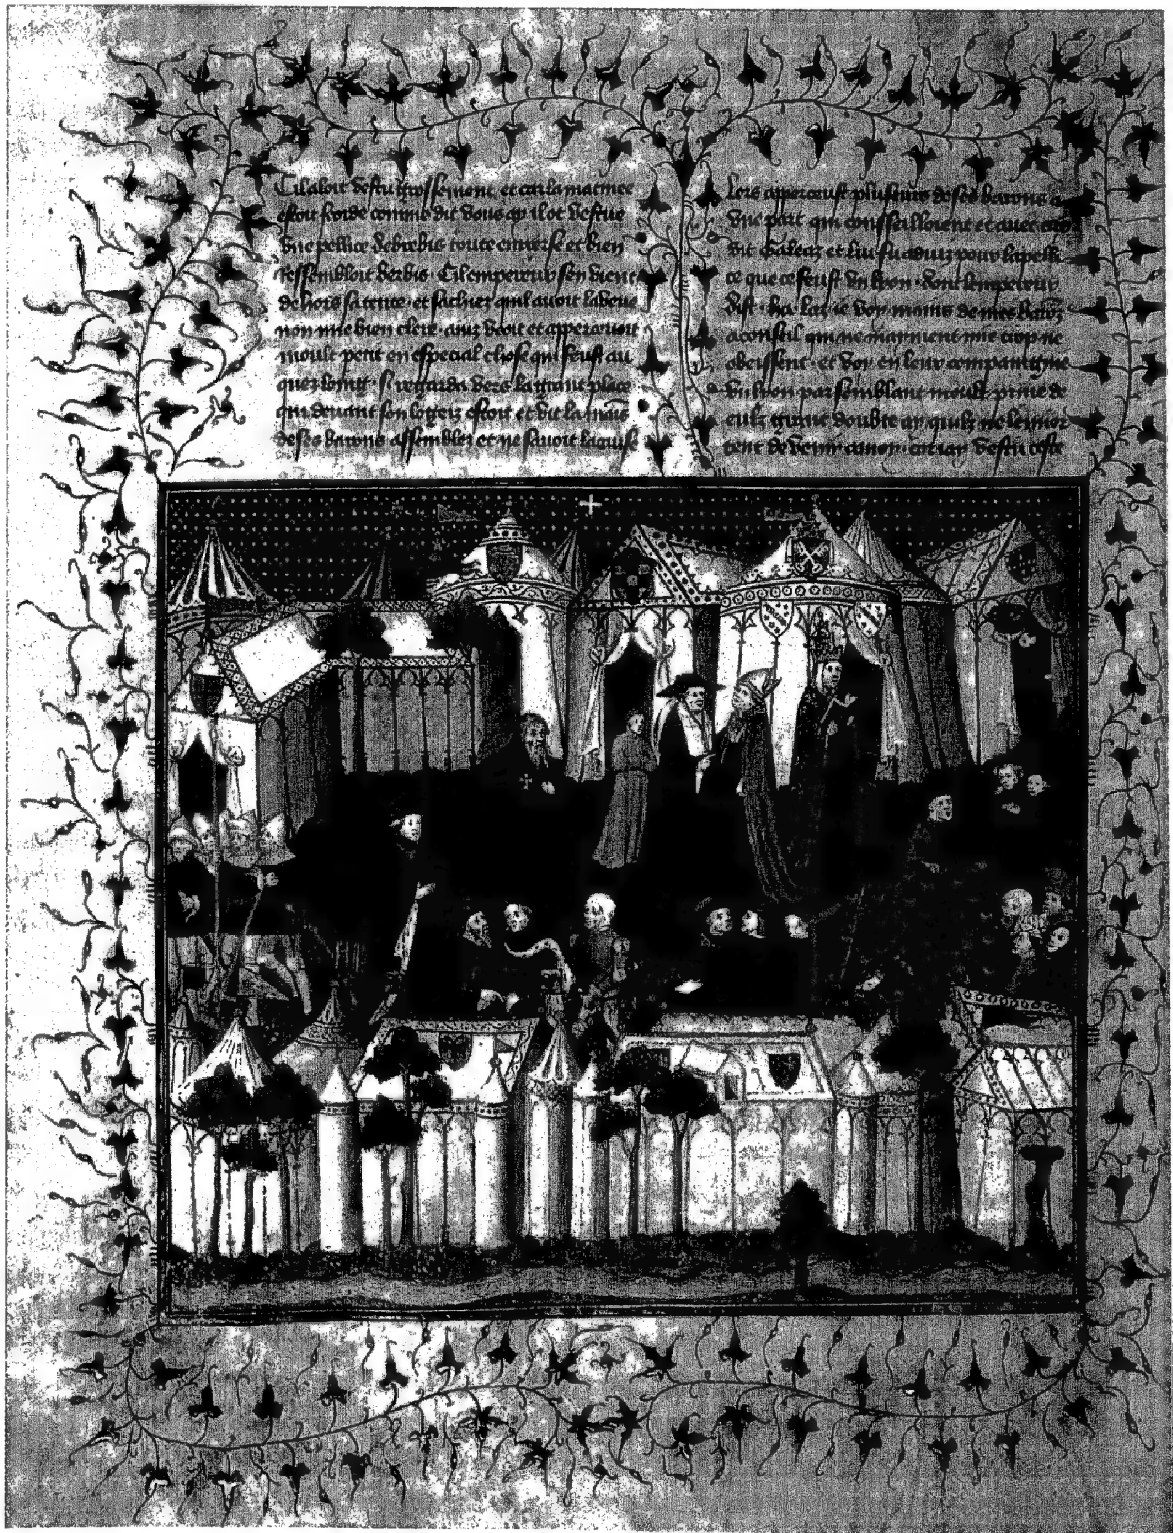 Cil aloit vestu grossement et car la matinee
estoit froide comme dit vous ay il ot vestue
vne pellice de brebis toute enuerse et bien
ressembloit berbis. Cil empereur sen vient
dehors sa tente. et sachiez quil auoit la veue
non mie bien clere. ainz veoit et apperceuoit
moult petit en especial chose qui feust au
quez loing. si regarda vers la grant place
qui deuant son logeiz estoit et vit la mais
de ses barons assemblez et ne sauoit la quise
Lors apperceust plusieurs de ses barons a
vne part qui conseilloient et auec
dit Galeaz et lui fu aduiz pour la pelle
ce que ce feust vn lyon. dont lempereur
dist. ha. laz ie voy moins de mes barons
a conseil qui ne maiment mie trop ne
obeissent. et voy en leur compaingnie
vn lyon par semblant moult priue de
eulz grant doubte ay quilz ne lenhor
tent de venir a moy. car iay vestu ceste